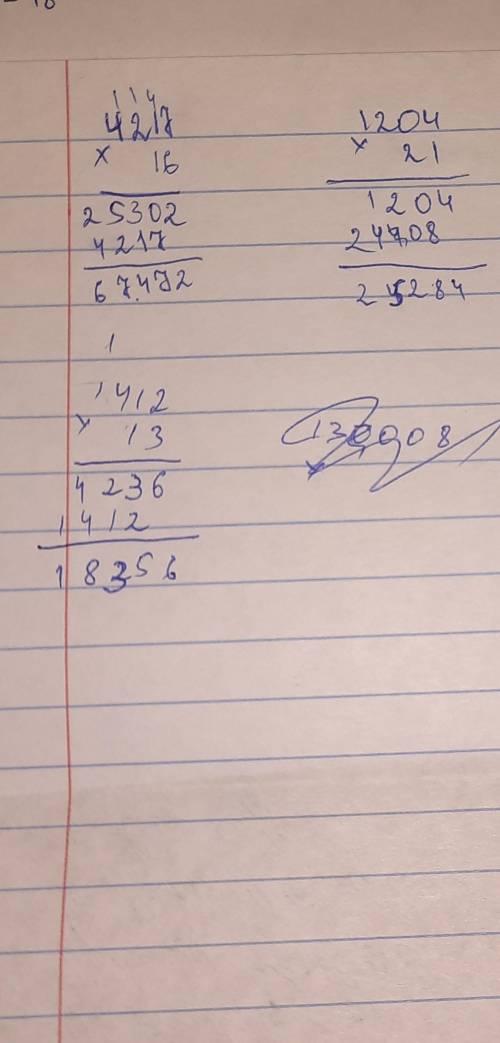 1 1 4
4217
× 16
25302
4217
67472
1204
× 21
1204
2408
25284
1
1412
× 13
4236
1412
18356